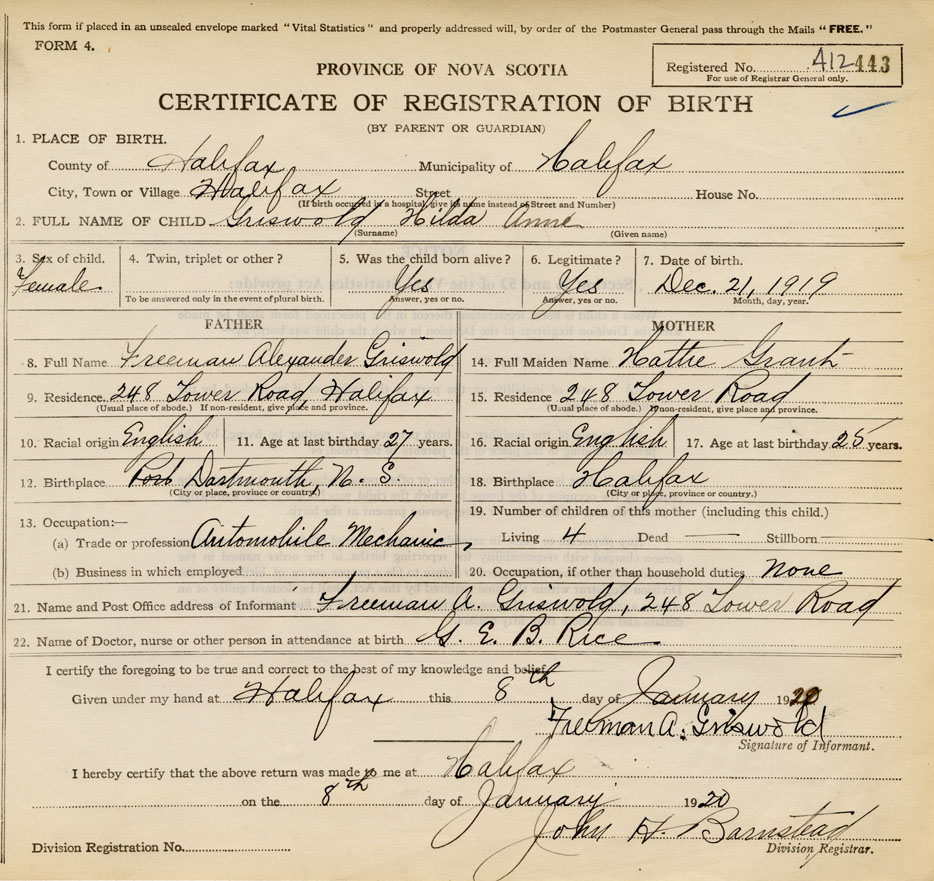 This form if placed in an unsealed envelope marked "Vital Statistics" and properly addressed will, by order of the Postmaster General pass through the Mails "FREE."
FORM 4.
Registered No. 412443
For use of Registrar General only.
PROVINCE OF NOVA SCOTIA
CERTIFICATE OF REGISTRATION OF BIRTH
(BY PARENT OR GUARDIAN)
1. PLACE OF BIRTH.
County of Halifax Municipality of Halifax
City, Town or Village Halifax Street House No.
(If birth occured in a hospital, give its name instead of Street and Number)
2. FULL NAME OF CHILD Griswold Hilda Anne
(Surname) (Given name)
3. Sex of child. 4. Twin, triplet or other? 5. Was the child born alive? 6. Legitimate? 7. Date of birth.
Female Yes Yes Dec. 21, 1919
To be answered only in the event of plural birth. Answer, yes or no. Answer, yes or no. Month, day, year.
FATHER MOTHER
8. Full Name Freeman Alexander Griswold 14. Full Maiden Name Hattie Grant
9. Residence. 248 Tower Road, Halifax 15. Residence 248 Tower Road
(Usual place of abode.) If non-resident, give place and province. (Usual place of abode.) If non-resident, give place and province.
10. Racial origin English 11. Age at last birthday 27 years. 16. Racial origin English 17. Age at last birthday 25 years.
12. Birthplace Dartmouth, N. S. 18. Birthplace Halifax
(City or place, province or country.) (City or place, province or country.)
13. Occupation:— 19. Number of children of this mother (including this child.)
(a) Trade or profession Automobile Mechanic Living 4 Dead — Stillborn —
(b) Business in which employed 20. Occupation, if other than household duties None
21. Name and Post Office address of Informant Freeman A. Griswold, 248 Tower Road
22. Name of Doctor, nurse or other person in attendance at birth G. E. B. Rice
I certify the foregoing to be true and correct to the best of my knowledge and belief.
Given under my hand at Halifax this 8th day of January 1920
Freeman A. Griswold
Signature of Informant.
I hereby certify that the above return was made to me at Halifax
on the 8th day of January 1920
John H. Barnstead
Division Registration No. Division Registrar.